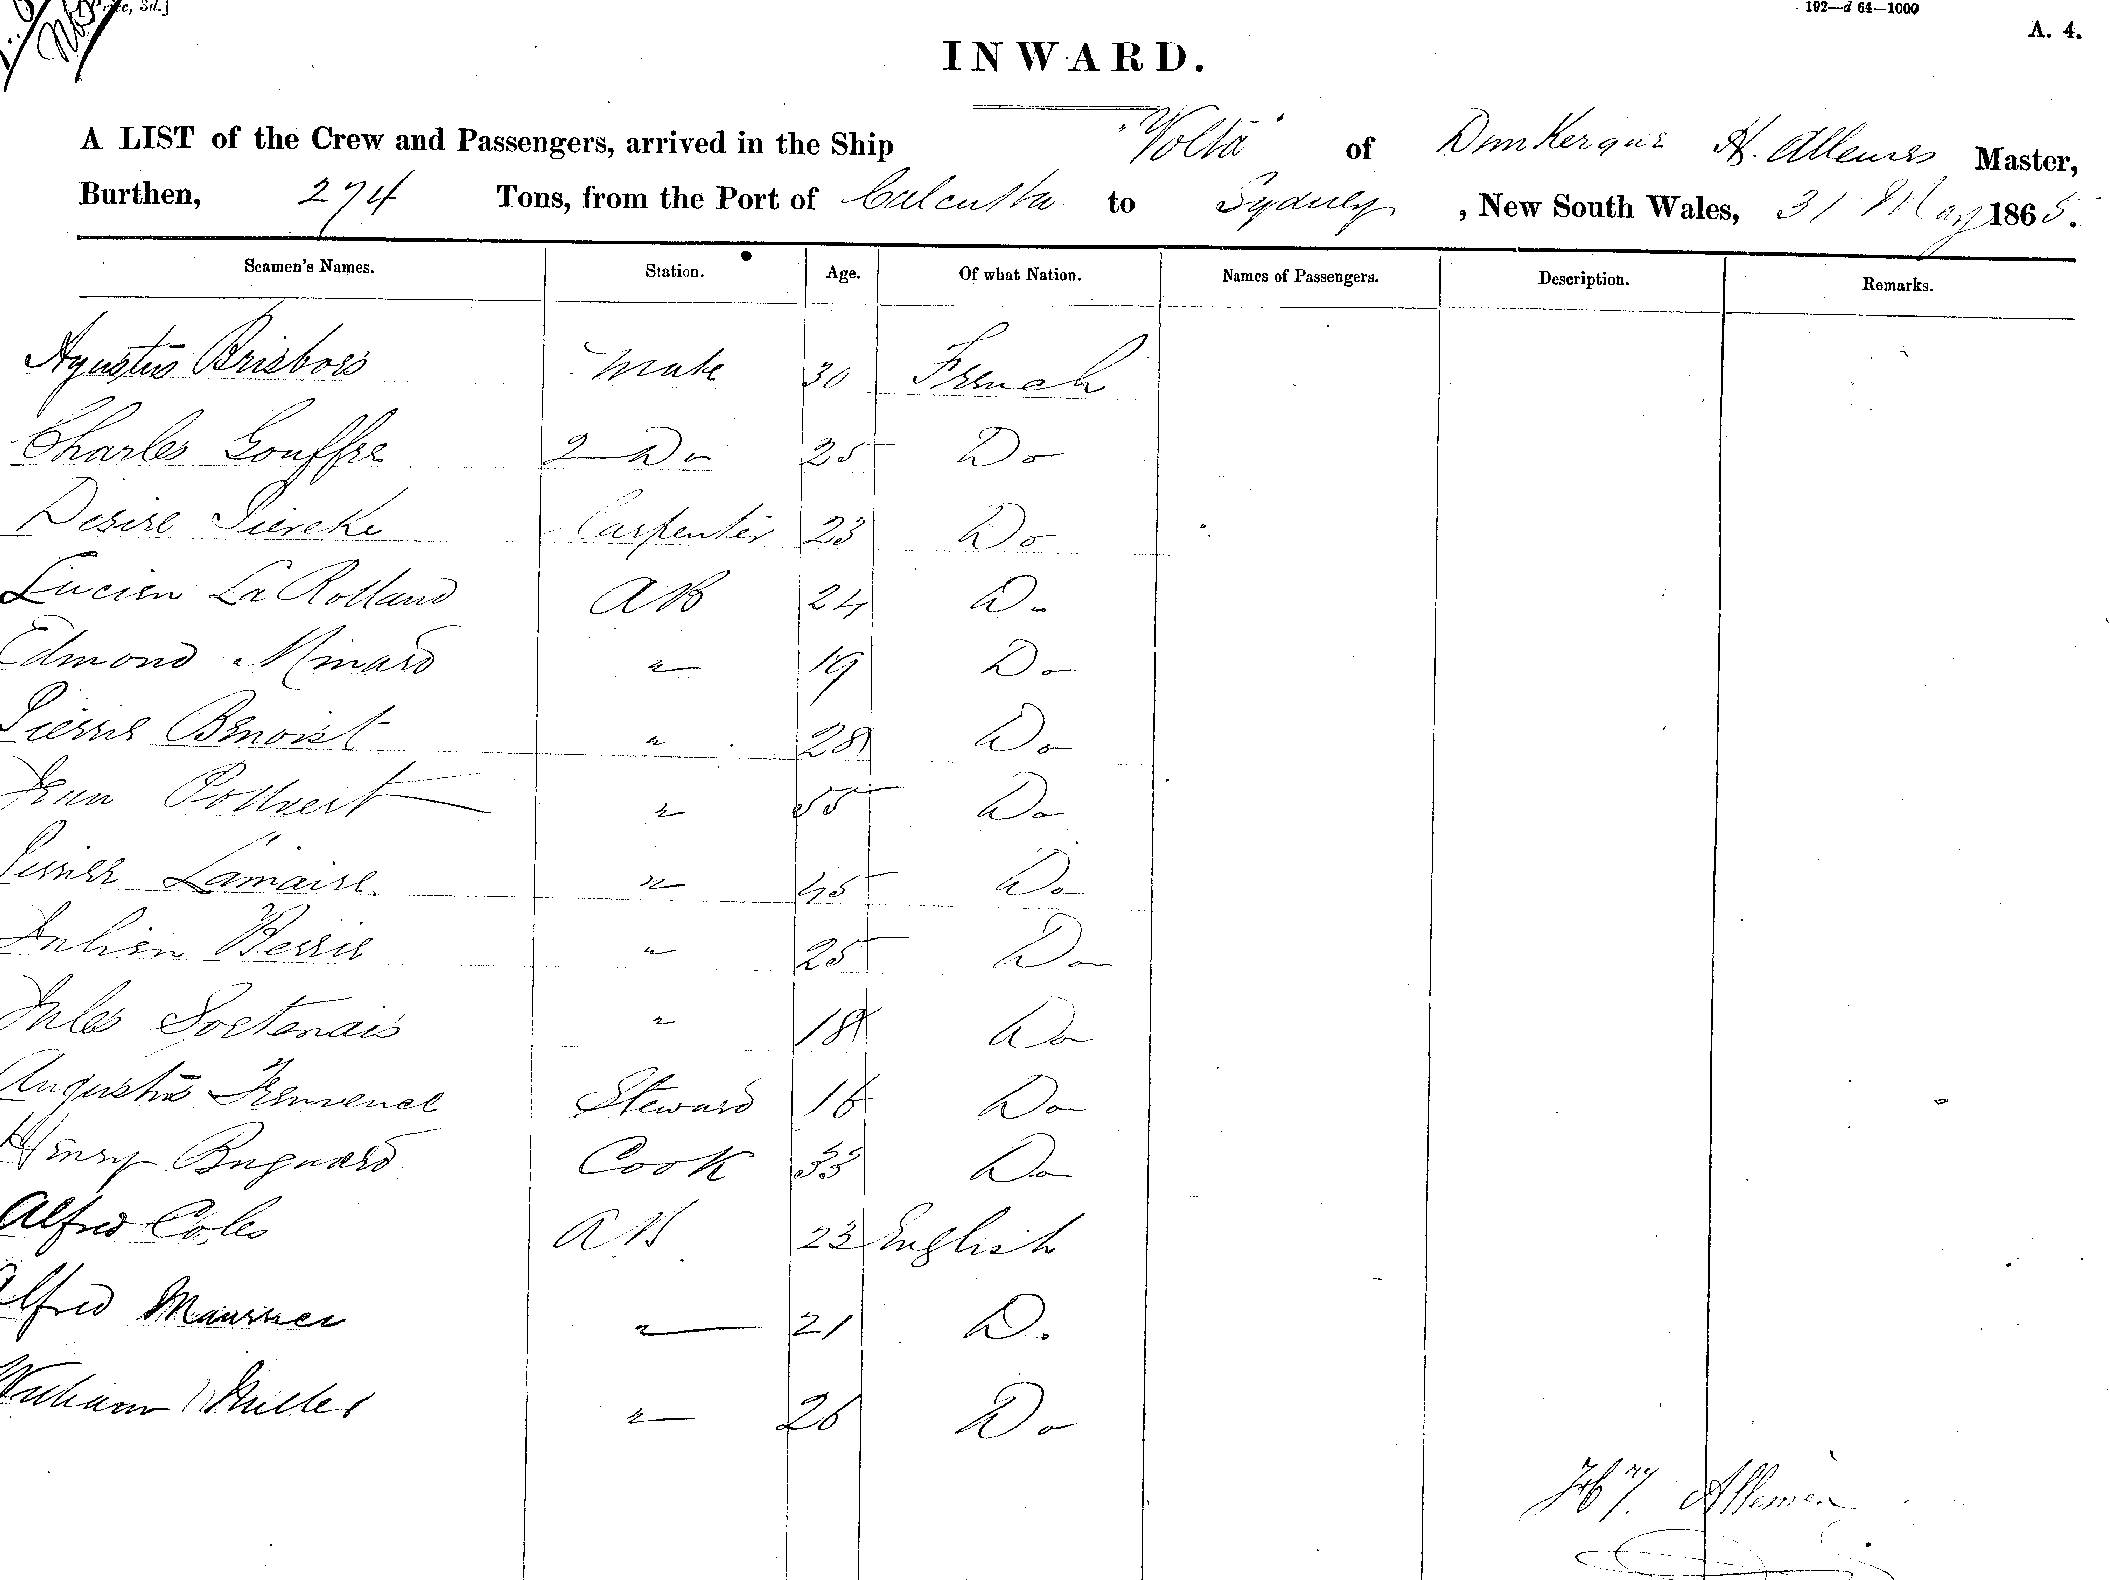 192—d 64—1000
A. 4.
INWARD.
A LIST of the Crew and Passengers, arrived in the Ship "Volta" of Dunkerque H. Allemes Master,
Burthen, 274 Tons, from the Port of Calcutta to Sydney, New South Wales, 31 May 1865.
Seamen's Names. Station. Age. Of what Nation. Names of Passengers. Description. Remarks.
Agustus Brisbois Mate 30 French
Charles Gouffre 2 Do 25 Do
Desire Piereke Carpenter 23 Do
Lucien La Rolland AB 24 Do
Edmond Minard " 19 Do
Pierre Benoist " 28 Do
Jean Pottvert " 55 Do
Pierre Lamaire " 45 Do
Julien Berrie " 25 Do
Jules Soetenais " 18 Do
Augustus Steward 16 Do
Henry Buguard Cook 33 Do
Alfred Coles AB 23 English
Alfred " 21 Do
William Miller " 26 Do
Hy. Allemes